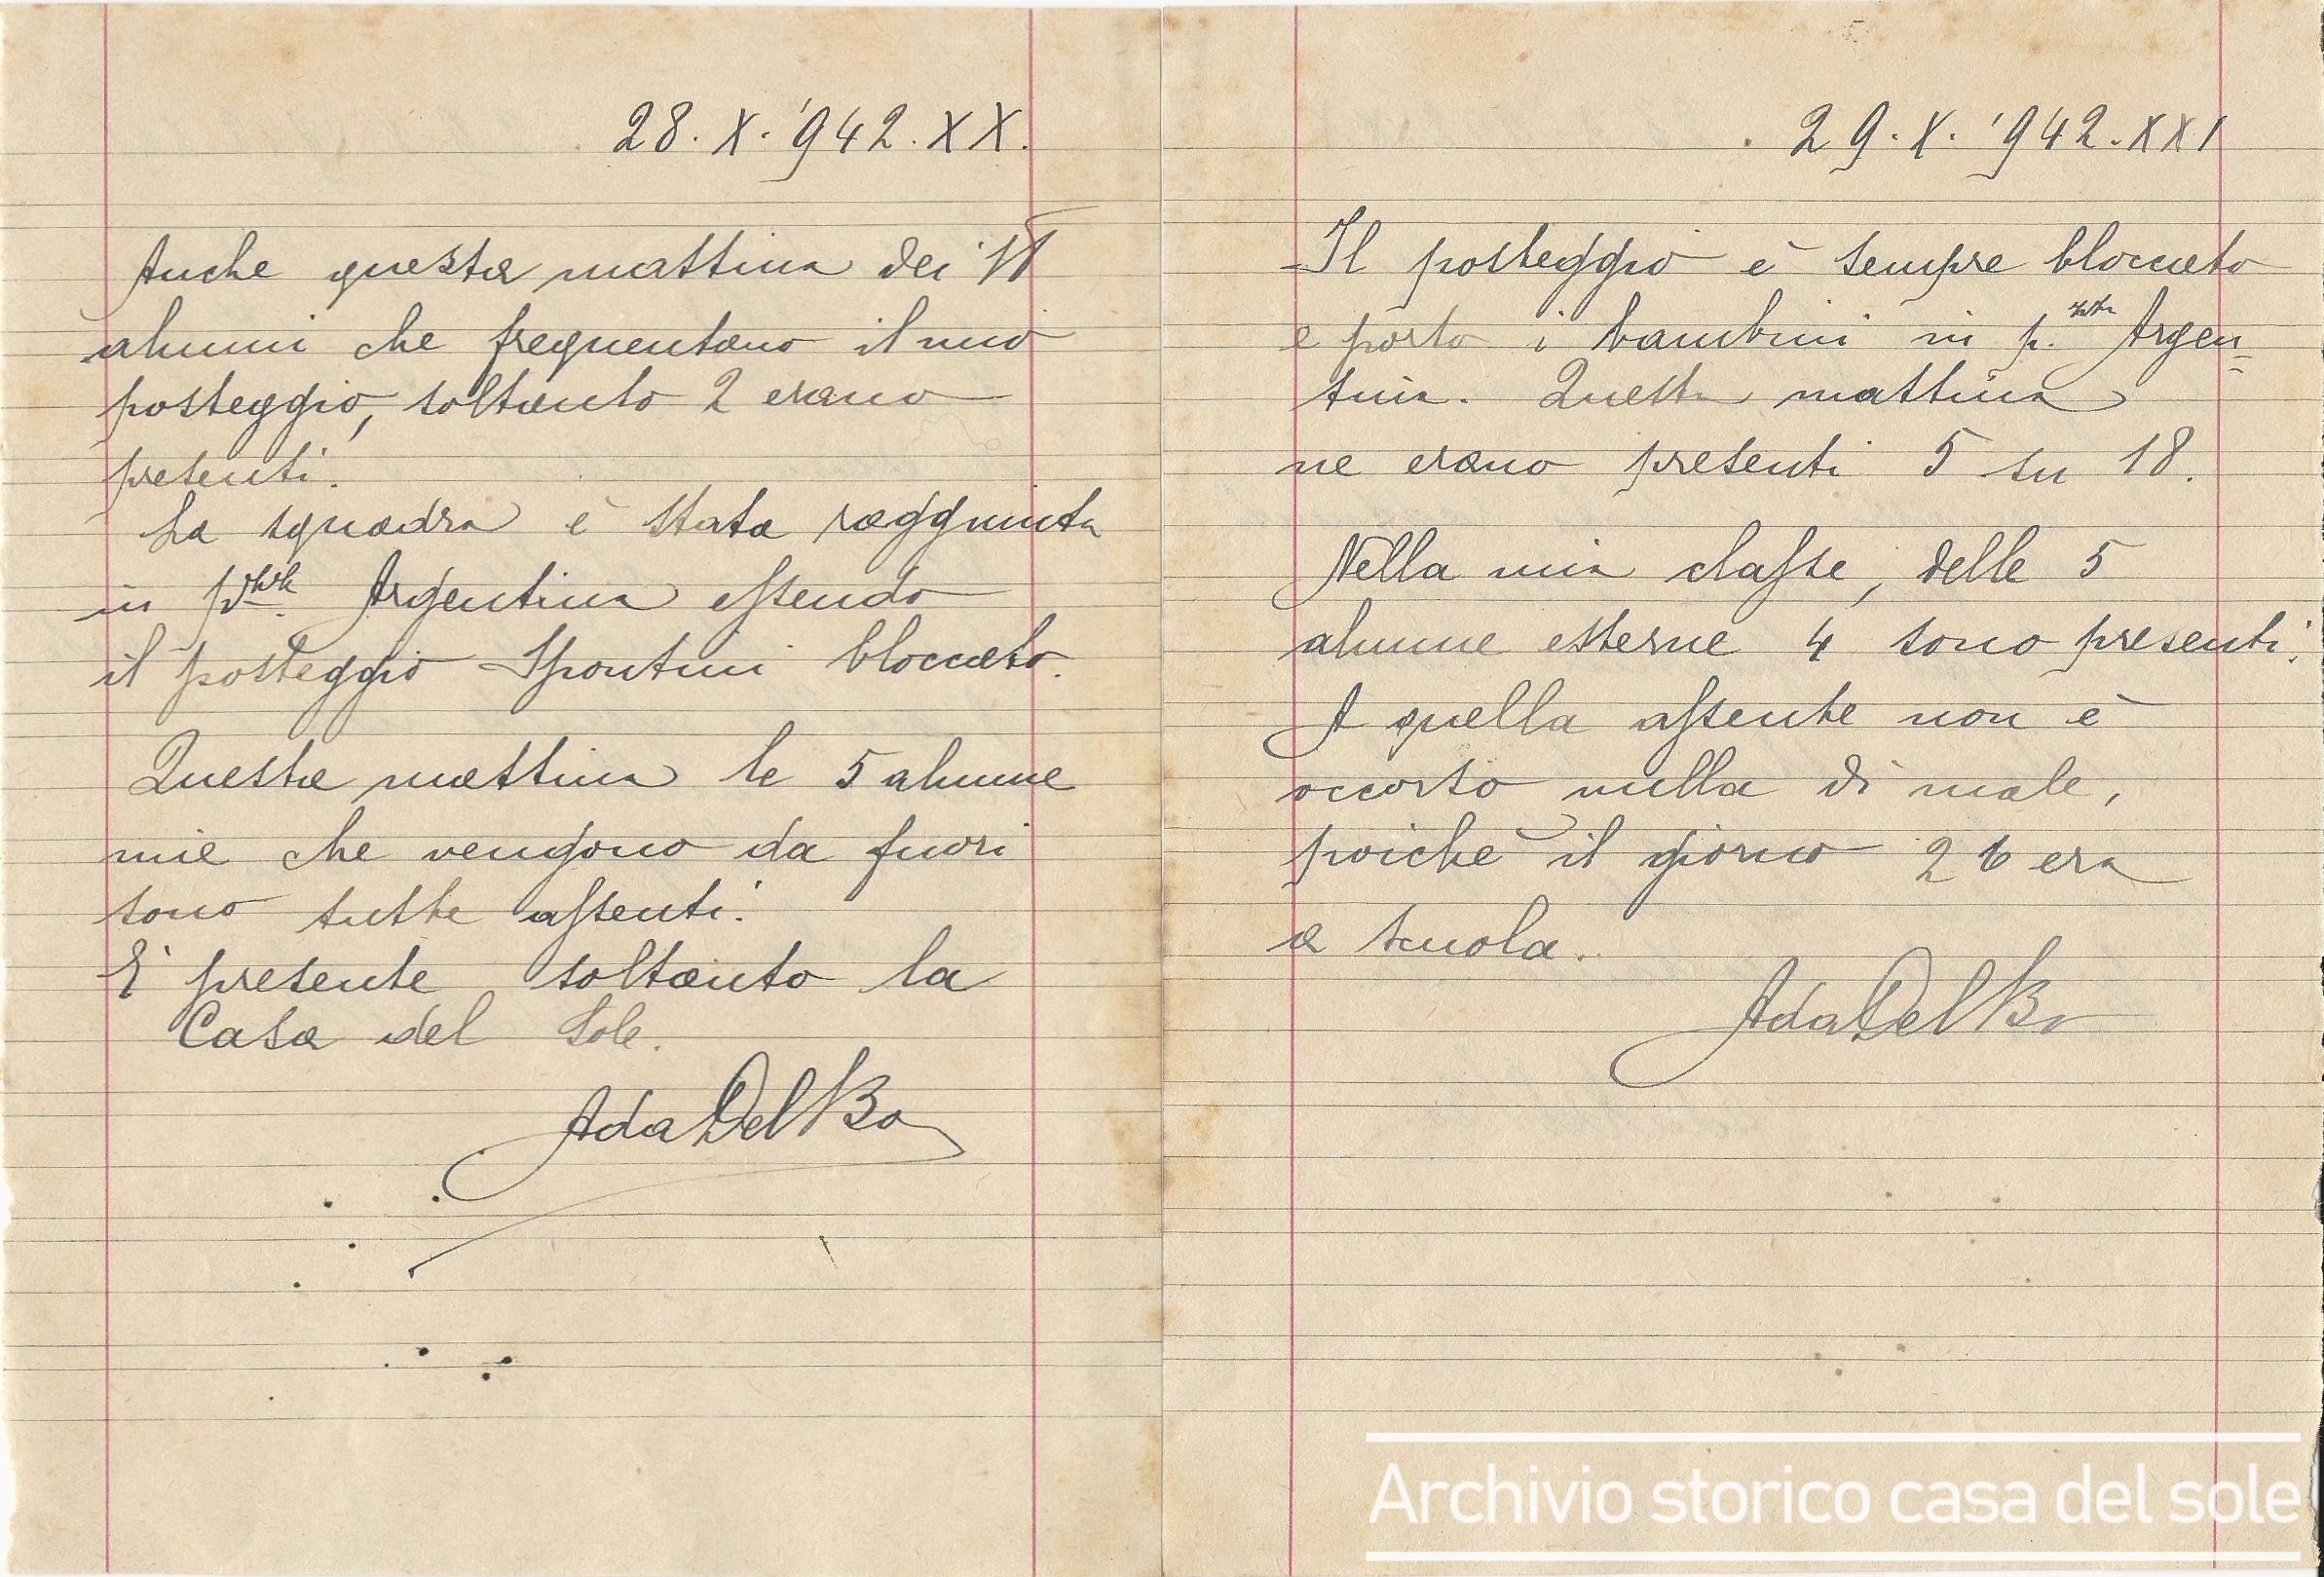 28. X. '942. XX.
Anche questa mattina dei
alunni che frequentano il mio
posteggio, soltanto 2 erano
presenti.
La squadra è stata raggiunta
in Argentina essendo
il posteggio Spontini bloccato.
Questa mattina le 5 alunne
mie che vengono da fuori
sono tutte assenti.
È presente soltanto la
Casa del Sole.
Ada Del Bo
29. X. '942. XXI
Il posteggio è sempre bloccato
e porto i bambini in p. Argen=
tina. Questa mattina
ne erano presenti 5 su 18.
Nella mia classe, delle 5
alunne esterne 4 sono presenti.
A quella assente non è
occorso nulla di male,
poiché il giorno 26 era
a scuola.
Ada Del Bo
Archivio storico casa del sole